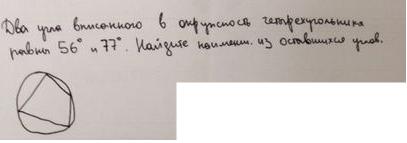 Два угла вписанного в окружность четырехугольника
равны 56° и 77°. Найдите наименьш. из оставшихся углов.